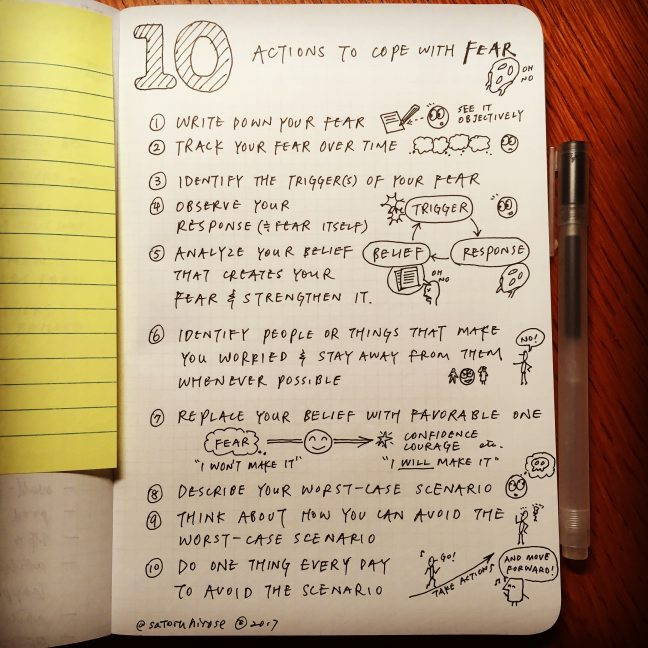 10 ACTIONS TO COPE WITH FEAR
OH NO
① WRITE DOWN YOUR FEAR
SEE IT
OBJECTIVELY
② TRACK YOUR FEAR OVER TIME
③ IDENTIFY THE TRIGGER(S) OF YOUR FEAR
④ OBSERVE YOUR
RESPONSE (≒FEAR ITSELF)
TRIGGER
⑤ ANALYZE YOUR BELIEF
THAT CREATES YOUR
FEAR & STRENGTHEN IT.
BELIEF
RESPONSE
OH
NO
⑥ IDENTIFY PEOPLE OR THINGS THAT MAKE
YOU WORRIED & STAY AWAY FROM THEM
WHENEVER POSSIBLE
NO!
⑦ REPLACE YOUR BELIEF WITH FAVORABLE ONE
FEAR
CONFIDENCE
COURAGE etc.
"I WON'T MAKE IT"
"I WILL MAKE IT"
⑧ DESCRIBE YOUR WORST-CASE SCENARIO
⑨ THINK ABOUT HOW YOU CAN AVOID THE
WORST-CASE SCENARIO
⑩ DO ONE THING EVERY DAY
TO AVOID THE SCENARIO
GO!
TAKE ACTIONS
AND MOVE
FORWARD!
@satoruhirose ©2017